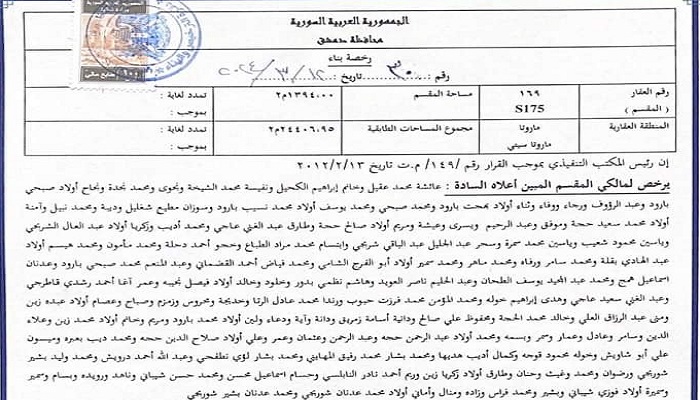 الجمهورية العربية السورية
محافظة دمشق
رخصة بناء
رقم: ٣٠ تاريخ: ٢٠٢٤/٣/١٢
رقم العقار ١٦٩ مساحة المقسم ١٣٩٤،٠٠م٢ تمدد لغاية :
( المقسم ) S175 بموجب :
المنطقة العقارية ماروتا مجموع المساحات الطابقية ٢٤٤٠٦،٩٥م٢ تمدد لغاية :
ماروتا سيتي بموجب :
إن رئيس المكتب التنفيذي بموجب القرار رقم /١٤٩/ م.ت تاريخ ٢٠١٢/٢/١٣
يرخص لمالكي المقسم المبين أعلاه السادة : عائشة محمد عقيل وخانم إبراهيم الكحيل ونفيسة محمد الشيخة ونجوى ومحمد نجدة ونجاح أولاد صبحي
بارود وعبد الرؤوف ورجاء ووفاء وثناء أولاد بهجت بارود ومحمد صبحي ومحمد يوسف أولاد محمد نسيب بارود وسوزان مطيع شغليل وديبة ومحمد نبيل وآمنة
أولاد محمد سعيد حجة وموفق وعبد الرحيم ويسرى وعيشة ومريم أولاد صالح حجة وطارق عبد الغني عاجي ومحمد أديب وزكريا أولاد عبد العال الشربجي
وياسين محمود شعيب وياسين محمد سمرة وسحر عبد الجليل عبد الباقي شربجي وابتسام محمد مراد الطباع وحجو أحمد دحلة ومحمد مأمون ومحمد هيسم أولاد
عبد الهادي بقلة ومحمد سامر ورفاه ومحمد ماهر ومحمد سمير أولاد أبو الفرج الشامي ومحمد فياض أحمد القضماني وعبد المنعم محمد صبحي بارود وعدنان
اسماعيل همج ومحمد عبد المجيد يوسف الطحان وعبد الحليم ناصر العويد وهاشم نظمي بدور وخلود وخالد أولاد فيصل نجيبه وعمر آغا أحمد رشدي قاطرجي
وعبد الغني سعيد عاجي وهدى إبراهيم خوله ومحمد المؤمن محمد فرزت حبوب ورندا محمد عادل الرتا وخديجة ومحروس وزمزم وصباح وعصام أولاد عبده زين
ومنى عبد الرزاق العلي وخالد محمد الحجة ومحفوظ علي صالح ودانية أسامة زمريق ودانة وآية ودعاء ولين أولاد محمد بارود ومريم وخانم أولاد محمد زين وعلاء
الدين وسامر وعادل وعمار وسمر وبسمه ومحمد أولاد عبد الرحمن حجه وعبد الرحمن وعثمان وعمر وعلي أولاد صلاح الدين حجه ومحمد ديب بعيره وميسون
علي أبو شاويش وخوله محمود قوجه وكمال أديب هديها ومحمد بشار محمد رفيق المهايني ومحمد بشار لؤي تطفجي وعبد الله أحمد درويش ومحمد وليد بشير
شوربجي ورضوان ومحمد وغيث وحنان وطارق أولاد زكريا زين وريم أحمد نادر النابلسي وحسام اسماعيل محسن ومحمد حسن شيباني وناهد ورويده وبسام وسمير
وسميرة أولاد فوزي شيباني وبشير ومحمد فراس وزاده ومنال وأماني أولاد محمد عدنان شوربجي ومحمد عدنان بشير شوربجي